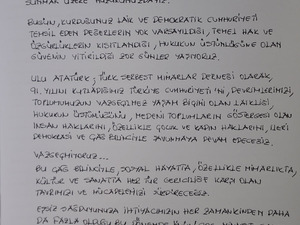 SUNMAK ÜZERE HUZURUNUZDAYIZ.
BUGÜN, KURDUĞUNUZ LAİK VE DEMOKRATİK CUMHURİYETİ
TEMSİL EDEN DEĞERLERİN YOK VARSAYILDIĞI, TEMEL HAK VE
ÖZGÜRLÜKLERİN KISITLANDIĞI, HUKUKUN ÜSTÜNLÜĞÜNE OLAN
GÜVENİN YİTİRİLDİĞİ ZOR GÜNLER YAŞIYORUZ.
ULU ATATÜRK; TÜRK SERBEST MİMARLAR DERNEĞİ OLARAK,
91. YILINI KUTLADIĞIMIZ TÜRKİYE CUMHURİYETİ'Nİ, DEVRİMLERİNİZİ,
TOPLUMUMUZUN VAZGEÇİLMEZ YAŞAM BİÇİMİ OLAN LAİKLİĞİ,
HUKUKUN ÜSTÜNLÜĞÜNÜ, MEDENİ TOPLUMLARIN GÖSTERGESİ OLAN
İNSAN HAKLARINI, ÖZELLİKLE ÇOCUK VE KADIN HAKLARINI, İLERİ
DEMOKRASİ VE ÇAĞ BİLİNCİYLE SAVUNMAYA DEVAM EDECEĞİZ.
VAZGEÇMİYORUZ...
BU ÇAĞ BİLİNCİYLE SOSYAL HAYATTA, ÖZELLİKLE MİMARLIKTA,
KÜLTÜR VE SANATTA HER TÜR GERİCİLİĞE KARŞI OLAN
TAVRIMIZI VE MÜCADELEMİZİ SÜRDÜRECEĞİZ.
EŞSİZ SAĞDUYUNUZA İHTİYACIMIZIN HER ZAMANKİNDEN DAHA
DA FAZLA OLDUĞU BU DÖNEMDE